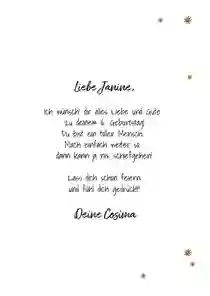 Liebe Janine,
Ich wünsch' dir alles Liebe und Gute
zu deinem Geburtstag!
Du bist ein toller Mensch.
Mach einfach weiter so
dann kann ja nix schiefgehen!
Lass dich schön feiern
und fühl dich gedrückt!
Deine Cosima